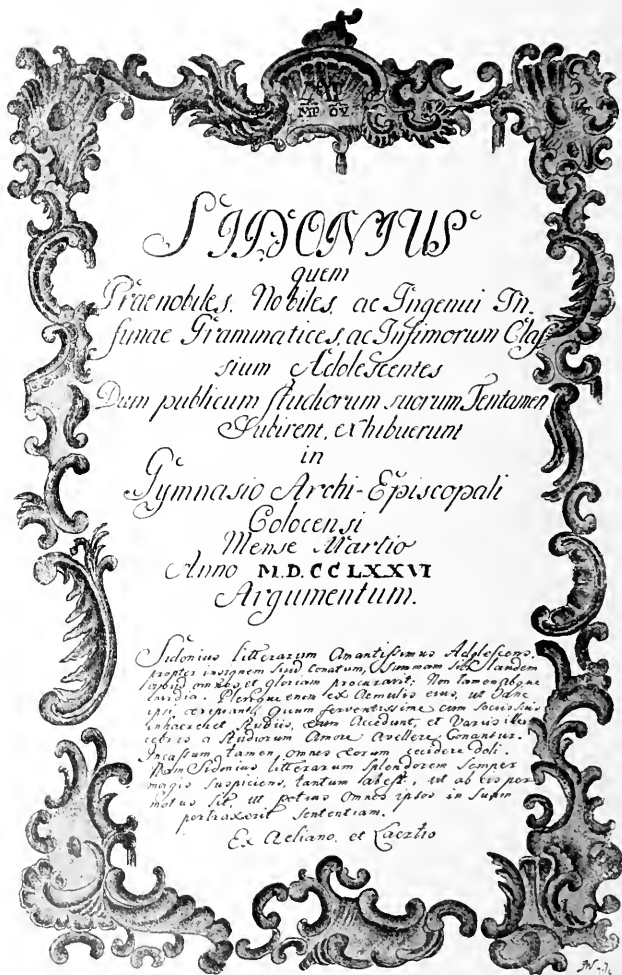 MP OV
SIDONIUS
quem
Praenobiles, Nobiles, ac Ingenui In,
fimae Grammatices, ac Infimorum Claſ
sium Adolescentes
Dum publicum ſtudiorum suorum Tentamen
Subirent, exhibuerunt
in
Gymnasio Archi-Episcopali
Colocensi
Mense Martio
Anno M.D.CCLXXVI
Argumentum.
Sidonius litterarum Amantiſsimus Adoleſcens,
propter insignem Conatum, Summam sibi laudem
apud omnes, et gloriam procurarit; Non tamen absque
invidia. Plerique enim ex Aemulis ejus, ut hanc
ipsi eripiant, Quum ferventissime cum Sociis suis
inhaereret Studiis, Eum Accedunt, et Variis ille
cebris a Studiorum Amore Avellere Conantur.
Incaſsum tamen omnes eorum cecidere doli.
Nam Sidonius litterarum Splendorem Semper
magis Suspiciens, tantum abeſt, ut ab eis per
motus sit, ut potius Omnes ipsos in Suam
pertraxerit Sententiam.
Ex Aeliano, et Laertio